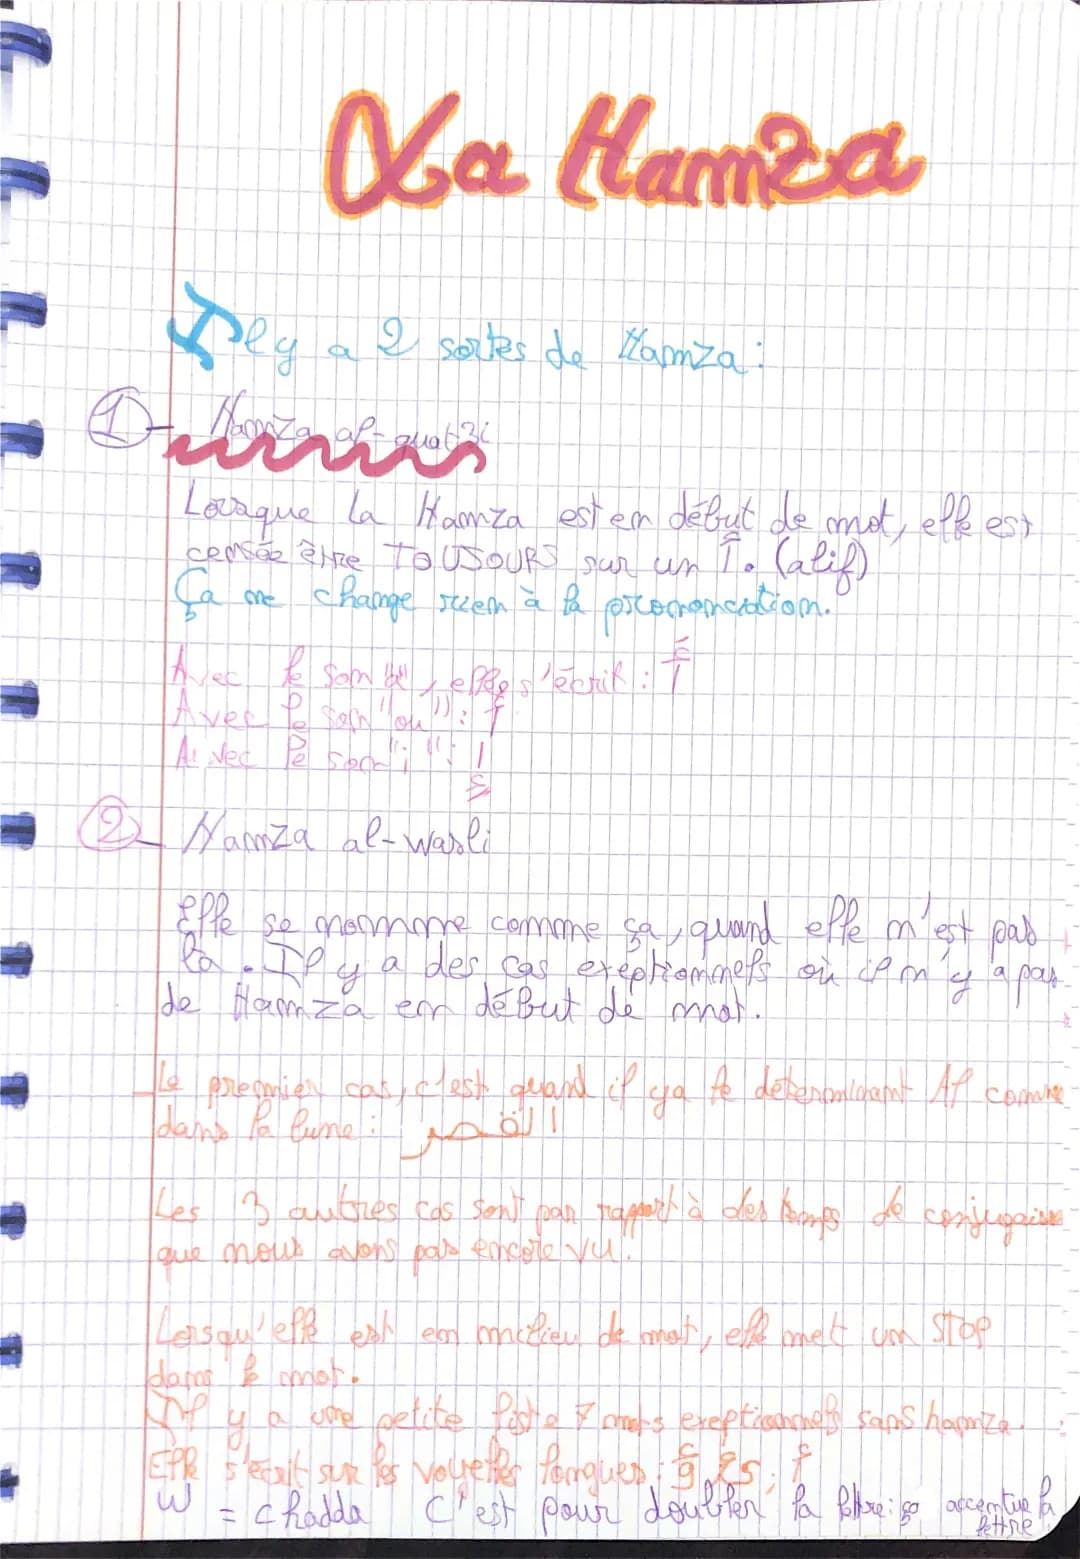 La Hamza
Il y a 2 sortes de Hamza :
1 - Hamza al-quat3i
Lorsque la Hamza est en début de mot, elle est
censée être TOUJOURS sur un أ. (alif)
Ça ne change rien à la prononciation.
Avec le son , elle s'écrit : أَ
Avec le son "ou" : أُ
Avec le son "i" : إ
2 - Hamza al-wasli
Elle se nomme comme ça, quand elle n'est pas
là. Il y a des cas exeptionnels où il n'y a pas
de Hamza en début de mot.
Le premier cas, c'est quand il y a le déterminant Al comme
dans la lune : القمر
Les 3 autres cas sont par rapport à des temps de conjugaison
que nous avons pas encore vu.
Lorsqu'elle est en milieu de mot, elle met un STOP
dans le mot.
Il y a une petite liste 7 mots exeptionnels sans hamza.
Elle s'écrit sur les voyelles longues : ؤ أ
w = chadda C'est pour doubler la lettre : ço accentue la
lettre